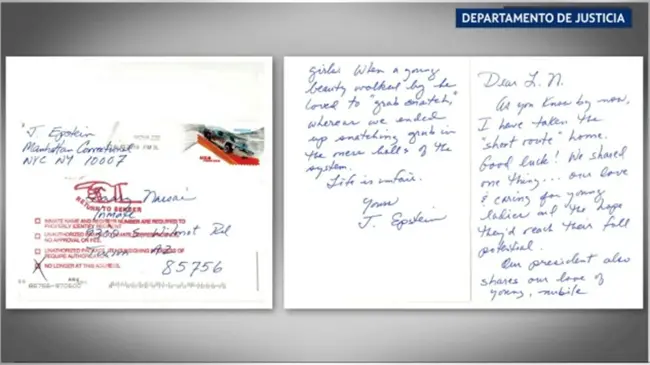 DEPARTAMENTO DE JUSTICIA
J. Epstein
Manhattan Correctional
NYC NY 10007
USA
RETURN TO SENDER
Inmate
INMATE NAME AND NUMBER ARE REQUIRED TO
PROPERLY IDENTIFY RECIPIENT
UNAUTHORIZED
NO APPROVAL ON FILE.
UNAUTHORIZED OF
REQUIRE AUTHORI
X NO LONGER AT THIS ADDRESS.
AZ
85756
girls. When a young
beauty walked by he
loved to "grab snatch,"
whereas we ended
up snatching grub in
the mess halls of the
system.
Life is unfair.
Yours
J. Epstein
Dear L. N.
As you know by now,
I have taken the
"short route" home.
Good luck! We shared
one thing... our love
& caring for young
ladies and the hope
they'd reach their full
potential.
Our president also
shares our love of
young, nubile